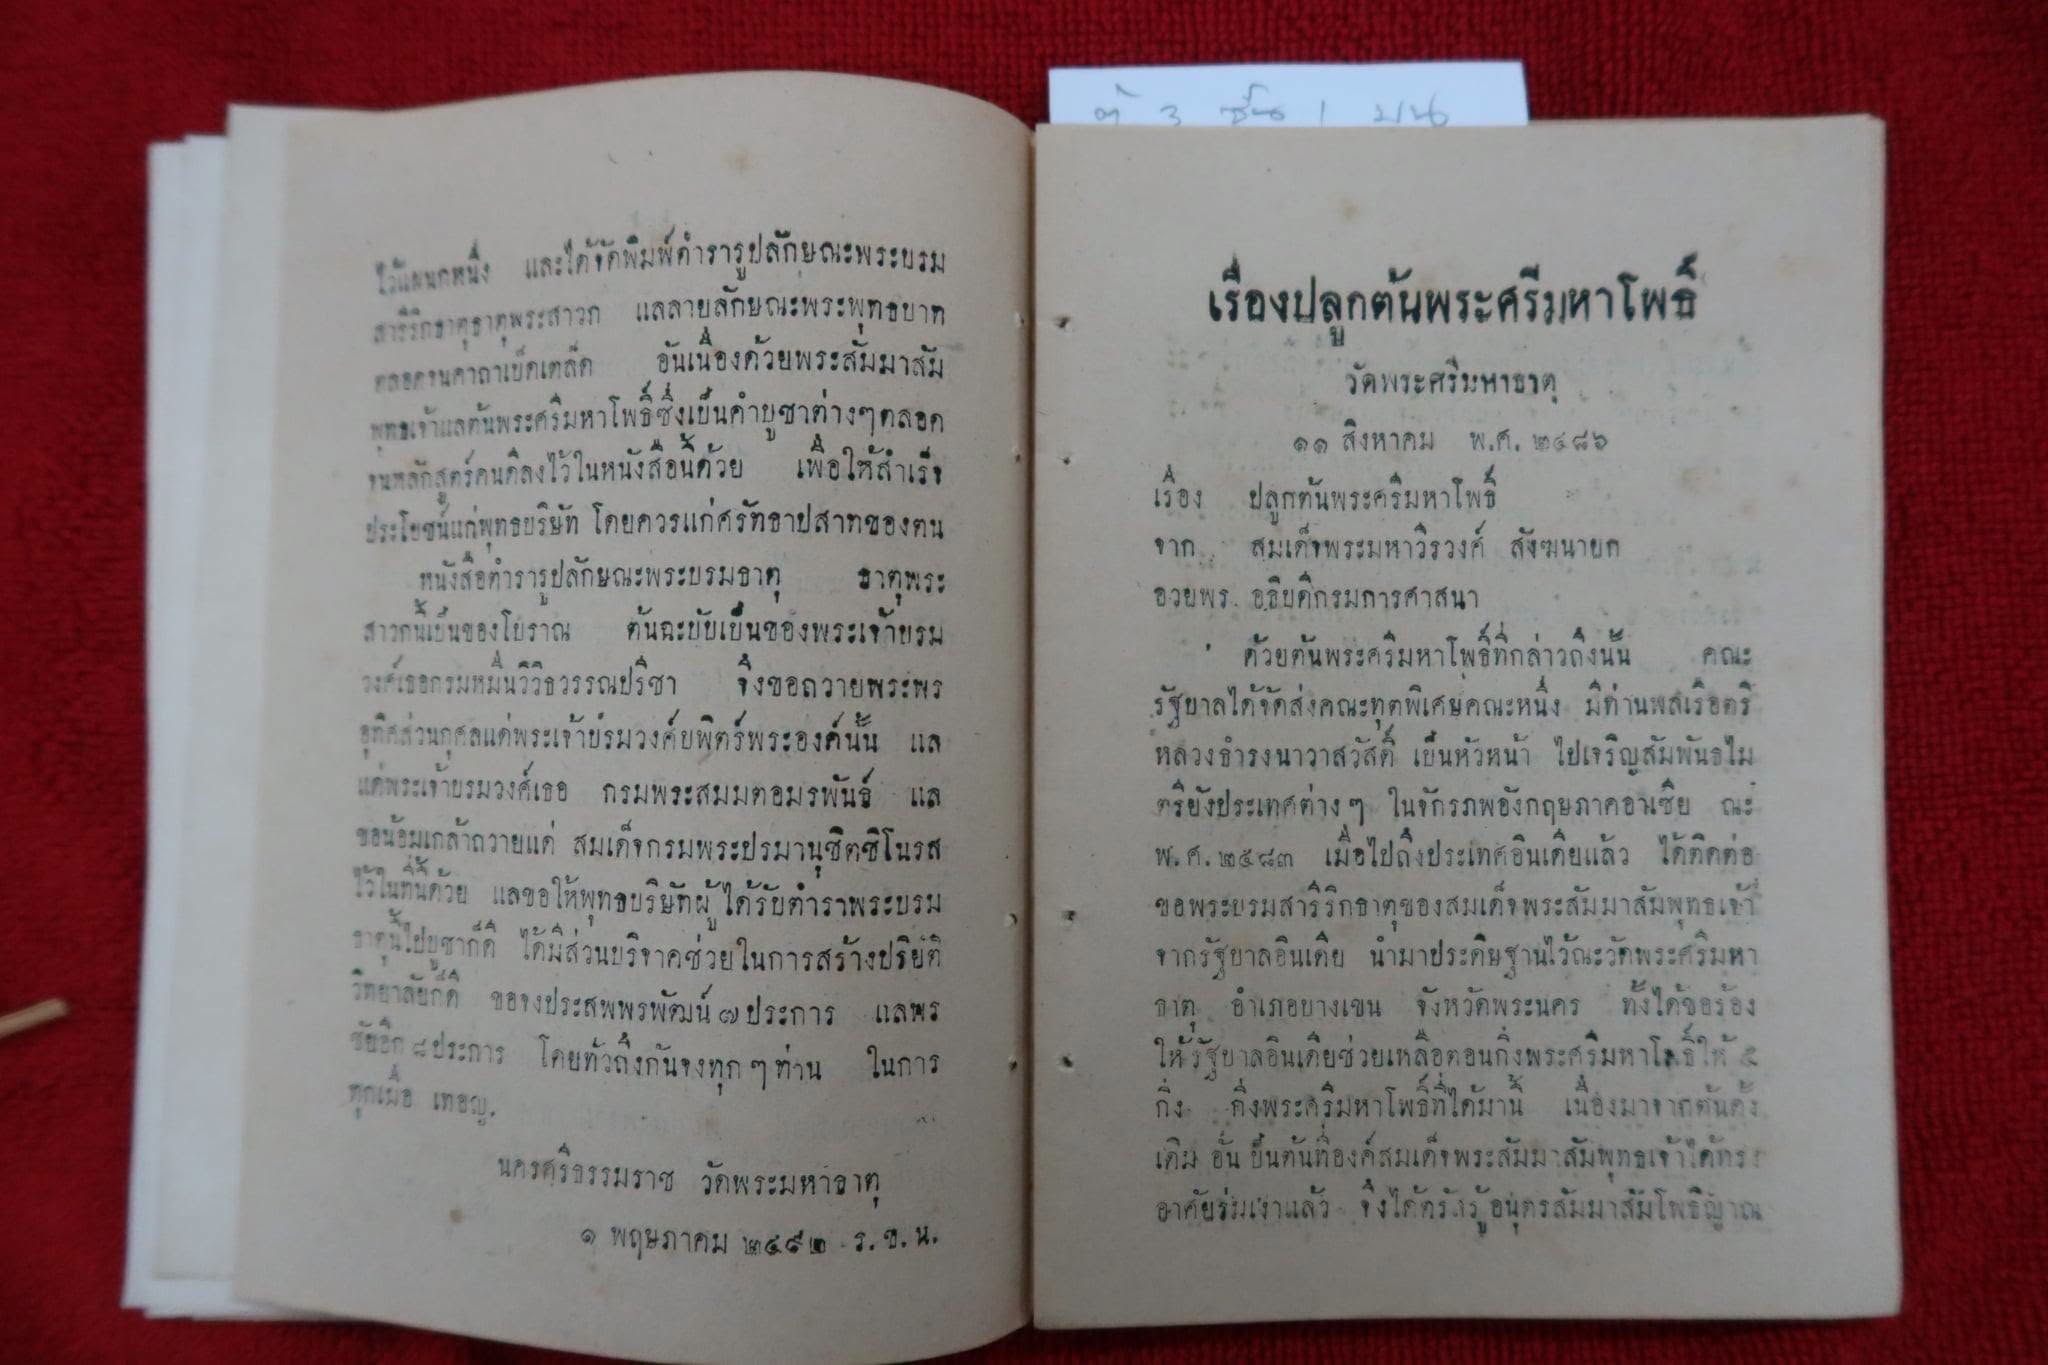 ไว้แผนกหนึ่ง และได้จัดพิมพ์ตำรารูปลักษณะพระบรม
สารีริกธาตุธาตุพระสาวก แลลายลักษณะพระพุทธบาท
ตลอดจนคาถาเบ็ดเตล็ด อันเนื่องด้วยพระสัมมาสัม
พุทธเจ้าแลต้นพระศรีมหาโพธิ์ซึ่งเป็นคำบูชาต่างๆตลอด
จนหลักสูตร์คนดีลงไว้ในหนังสือนี้ด้วย เพื่อให้สำเร็จ
ประโยชน์แก่พุทธบริษัท โดยควรแก่ศรัทธาปสาทของตน
หนังสือตำรารูปลักษณะพระบรมธาตุ ธาตุพระ
สาวกนี้เป็นของโบราณ ต้นฉะบับเป็นของพระเจ้าบรม
วงศ์เธอกรมหมื่นวิวิธวรรณปรีชา จึงขอถวายพระพร
อุทิศส่วนกุศลแด่พระเจ้าบรมวงศ์ยพิตร์พระองค์นั้น แล
แด่พระเจ้าบรมวงศ์เธอ กรมพระสมมตอมรพันธ์ แล
ขอน้อมเกล้าถวายแด่ สมเด็จกรมพระปรมานุชิตชิโนรส
ไว้ในที่นี้ด้วย แลขอให้พุทธบริษัทผู้ได้รับตำราพระบรม
ธาตุนี้ไปบูชาก็ดี ได้มีส่วนบริจาคช่วยในการสร้างปริยัติ
วิทยาลัยก็ดี ขอจงประสพพรพัฒน์ ๗ ประการ แลพร
ชัยอีก ๘ ประการ โดยทั่วถึงกันจงทุก ๆ ท่าน ในการ
ทุกเมื่อ เทอญ.
นครศรีธรรมราช วัดพระมหาธาตุ
๑ พฤษภาคม ๒๔๙๒ ร. ข. น.
ตู้ ๓ ชั้น ๑ บน
เรื่องปลูกต้นพระศรีมหาโพธิ์
วัดพระศรีมหาธาตุ
๑๑ สิงหาคม พ.ศ. ๒๔๘๖
เรื่อง ปลูกต้นพระศรีมหาโพธิ์
จาก สมเด็จพระมหาวีรวงศ์ สังฆนายก
อวยพร อธิบดีกรมการศาสนา
ด้วยต้นพระศรีมหาโพธิ์ที่กล่าวถึงนั้น คณะ
รัฐบาลได้จัดส่งคณะทูตพิเศษคณะหนึ่ง มีท่านพลเรือตรี
หลวงธำรงนาวาสวัสดิ์ เป็นหัวหน้า ไปเจริญสัมพันธไม
ตรียังประเทศต่าง ๆ ในจักรภพอังกฤษภาคอาเซีย ณะ
พ.ศ. ๒๔๘๓ เมื่อไปถึงประเทศอินเดียแล้ว ได้ติดต่อ
ขอพระบรมสารีริกธาตุของสมเด็จพระสัมมาสัมพุทธเจ้า
จากรัฐบาลอินเดีย นำมาประดิษฐานไว้ณะวัดพระศรีมหา
ธาตุ อำเภอบางเขน จังหวัดพระนคร ทั้งได้ขอร้อง
ให้รัฐบาลอินเดียช่วยเหลือตอนกิ่งพระศรีมหาโพธิ์ให้ ๕
กิ่ง กิ่งพระศรีมหาโพธิ์ที่ได้มานี้ เนื่องมาจากต้นดั้ง
เดิม อัน เป็นต้นที่องค์สมเด็จพระสัมมาสัมพุทธเจ้าได้ทรง
อาศัยร่มเงาแล้ว จึงได้ตรัสรู้อนุตรสัมมาสัมโพธิญาณ